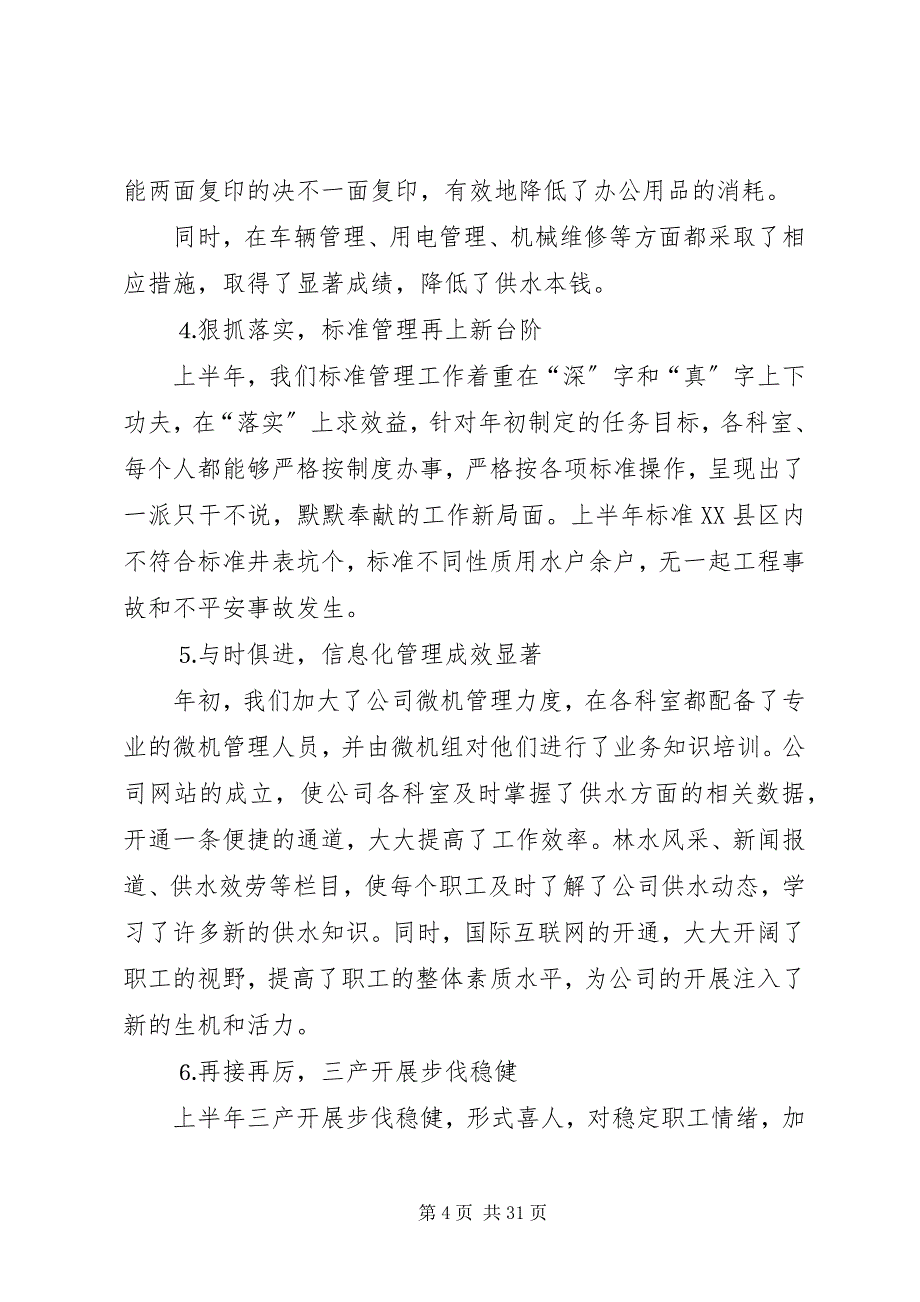 能两面复印的决不一面复印，有效地降低了办公用品的消耗。
同时，在车辆管理、用电管理、机械维修等方面都采取了相
应措施，取得了显著成绩，降低了供水本钱。
4.狠抓落实，标准管理再上新台阶
上半年，我们标准管理工作着重在“深〞字和“真〞字上下
功夫，在“落实〞上求效益，针对年初制定的任务目标，各科室、
每个人都能够严格按制度办事，严格按各项标准操作，呈现出了
一派只干不说，默默奉献的工作新局面。上半年标准 XX 县区内
不符合标准井表坑个，标准不同性质用水户余户，无一起工程事
故和不平安事故发生。
5.与时俱进，信息化管理成效显著
年初，我们加大了公司微机管理力度，在各科室都配备了专
业的微机管理人员，并由微机组对他们进行了业务知识培训。公
司网站的成立，使公司各科室及时掌握了供水方面的相关数据，
开通一条便捷的通道，大大提高了工作效率。林水风采、新闻报
道、供水效劳等栏目，使每个职工及时了解了公司供水动态，学
习了许多新的供水知识。同时，国际互联网的开通，大大开阔了
职工的视野，提高了职工的整体素质水平，为公司的开展注入了
新的生机和活力。
6.再接再厉，三产开展步伐稳健
上半年三产开展步伐稳健，形式喜人，对稳定职工情绪，加
第 4 页 共 31 页